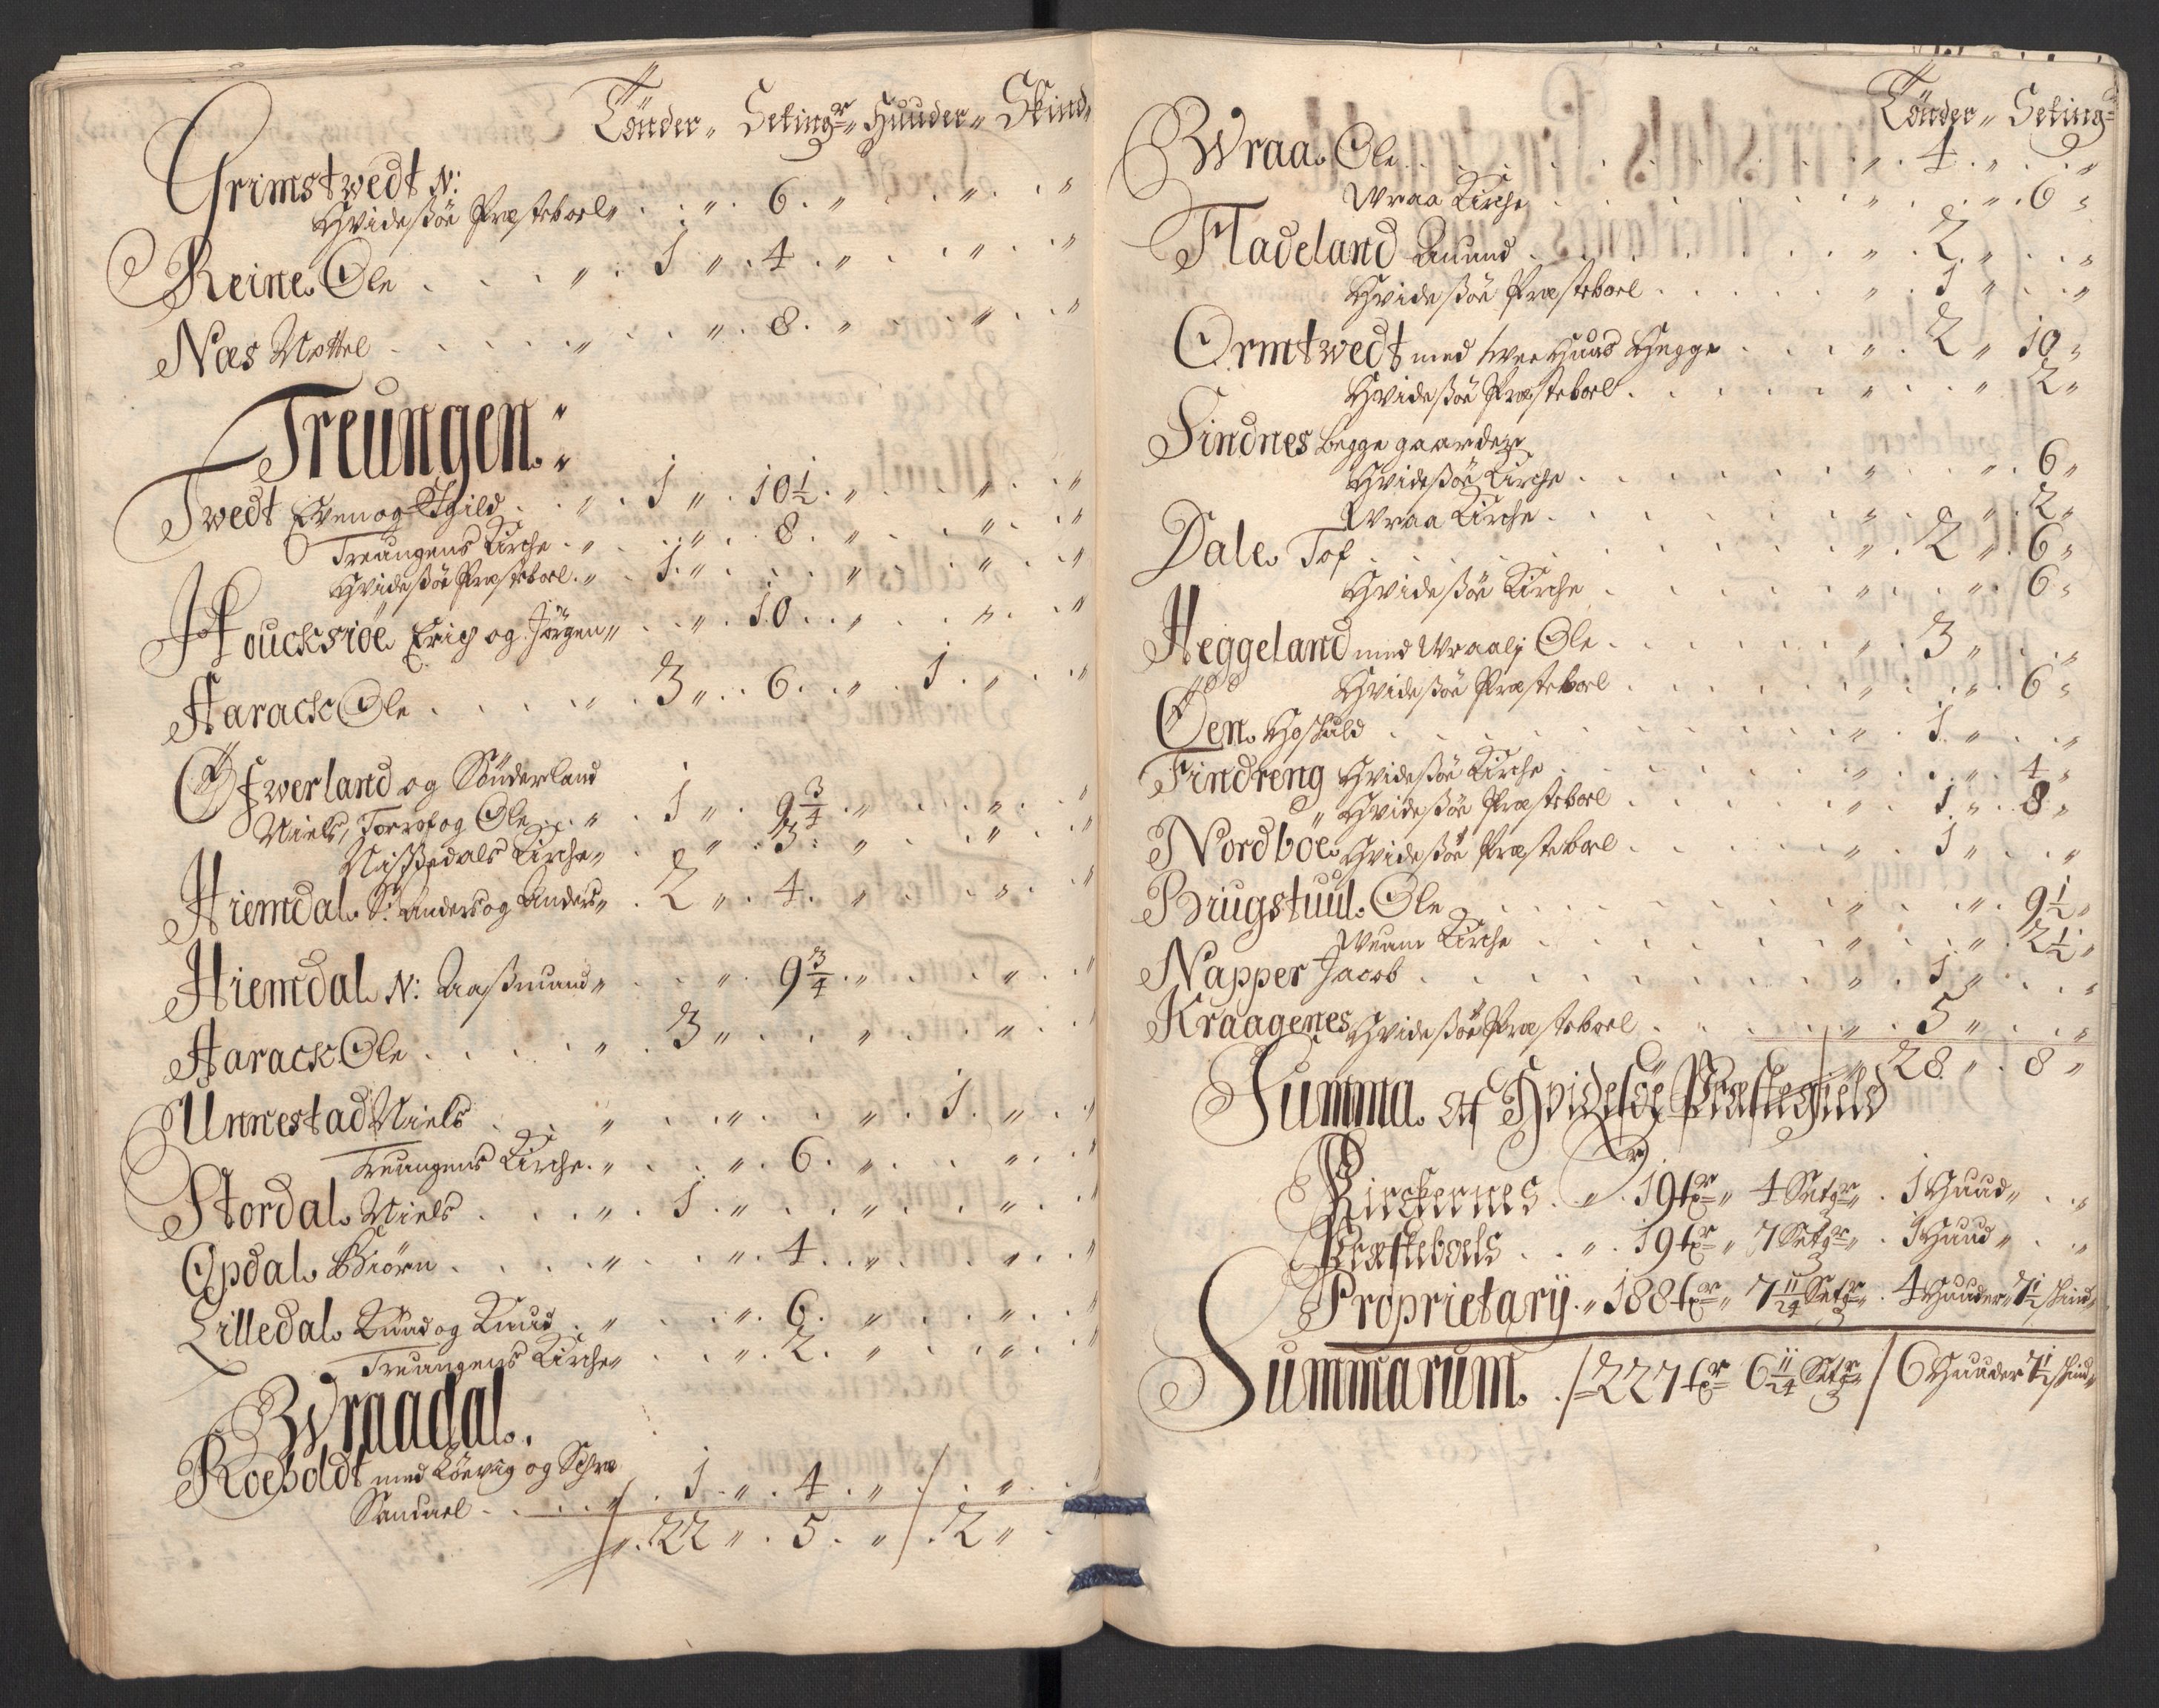 Tönder„ Setingr„ Huuder„ Skind„
Grimstwedt N:
Hvidesßöe Præsteboel„ . . „ . 6 . „ . . „ . . „
Reine Ole . . . „ . 1 „ . 4 . „ . . „ . . „
Næs Nottel . . . . „ . . „ . 8 . „ . . „ . . „
Treungen :
Twedt Even og Egild . . „ . 1 „ . 10½ . „ . . „ . . „
Treungens Kirche . „ . . „ . 8 . „ . . „ . . „
Hvidesßöe Præsteboel . „ . 1 . „ . . . „ . . „ . . „
Houcksiöe Erich og Jörgen „ . . „ . 10 . . „ . . „ . . „
Harack Ole . . . . „ . 3 „ . . 6 . . „ . 1 . „ . . „
Öfwerland og Sönderland
Niels, Torrof og Ole . . „ . 1 „ . 9¾ . „ . . „ . . „
Nissedals Kirche „ . . „ . 3 . „ . . „ . . „
Hiemdal S: Anders og Anders „ . 2 „ . 4 . „ . . „ . . „
Hiemdal N: Aaßmund „ . . „ . 9¾ . „ . . „ . . „
Harack Ole . . . . „ . 3 „ . . „ . . „ . . „
Unnestad Niels . . . „ . . „ . . „ . 1 . „ . . „
Treungens Kirche . „ . . „ . 6 . „ . . „ . . „
Stordal Niels . . . „ . 1 . „ . . „ . . „ . . „
Opdal Biörn . . . . „ . . „ . 4 . „ . . „ . . „
Lilledal Knud og Knud . „ . . „ . 6 . „ . . „ . . „
Treungens Kirche „ . . „ . 2 . „ . . „ . . „
Wraadal.
Roeholdt med Löevig og
Samuel . . . . „ . 1 . „ . 4 . „ . . „ . .
„ . 22 „ . 5 . „ . 2 „
Tönder„ Seting=
Wraa Ole . . . . . „ . 4 . „ . . „
Wraa Kirche . . . . „ . . „ . 6 „
Fladeland Auund . . . . „ . 2 „ . . „
Hvidesßöe Præsteboel . . . . „ . 1 „ . . „
Ormtwedt med Hegge . . . „ . 2 „ 10 „
Hvidesßöe Præsteboel . . . . „ . . „ 2 „
Sindnes begge gaarder
Hvidesßöe Kirche . . . . „ . . „ . 6 „
Wraa Kirche . . . . „ . . „ . 2 „
Dale Tof . . . . . „ . 2 „ . 6 „
Hvidesßöe Kirche . . . . „ . . „ . 6 „
Heggeland med Wraalj Ole . . . . „ . 3 „ . . „
Hvidesßöe Præsteboel . . . . „ . . „ . 6 „
Öen . . . . . „ . 1 . „ . . „
Findreng Hvidesßöe Kirche . . . . „ . . „ . 4 „
„ Hvidesßöe Præsteboel . . . . „ . 1 „ . 8 „
Nordböe Hvidesßöe Præsteboel . . . . „ . 1 „ . . „
Brugstuul Ole . . . . . „ . . „ . 9½ „
Kirche . . . . „ . . „ . 2½ „
Napper Jacob . . . . . „ . 1 „ . . „
Kraagenes Hvidesßöe Præsteboel . . . . „ . 5 „ . . „
„ 28 „ . 8 „
Summa af Hvidesöe Præstegield
Kirckernes . „ . 19 tr „ 4 Setgr „ . 1 Huud „ . . „
Præsteboels . . „ . 19 tr „ 7 Setgr „ . 1 Huud „ . . „
Proprietarij . „ 188 tr „ 7 11/24 Setgr „ . 4 Huuder „ 7½ skind „
Summarum . / = 227 tr 6 11/24 Setgr / 6 Huuder 7½ skind „